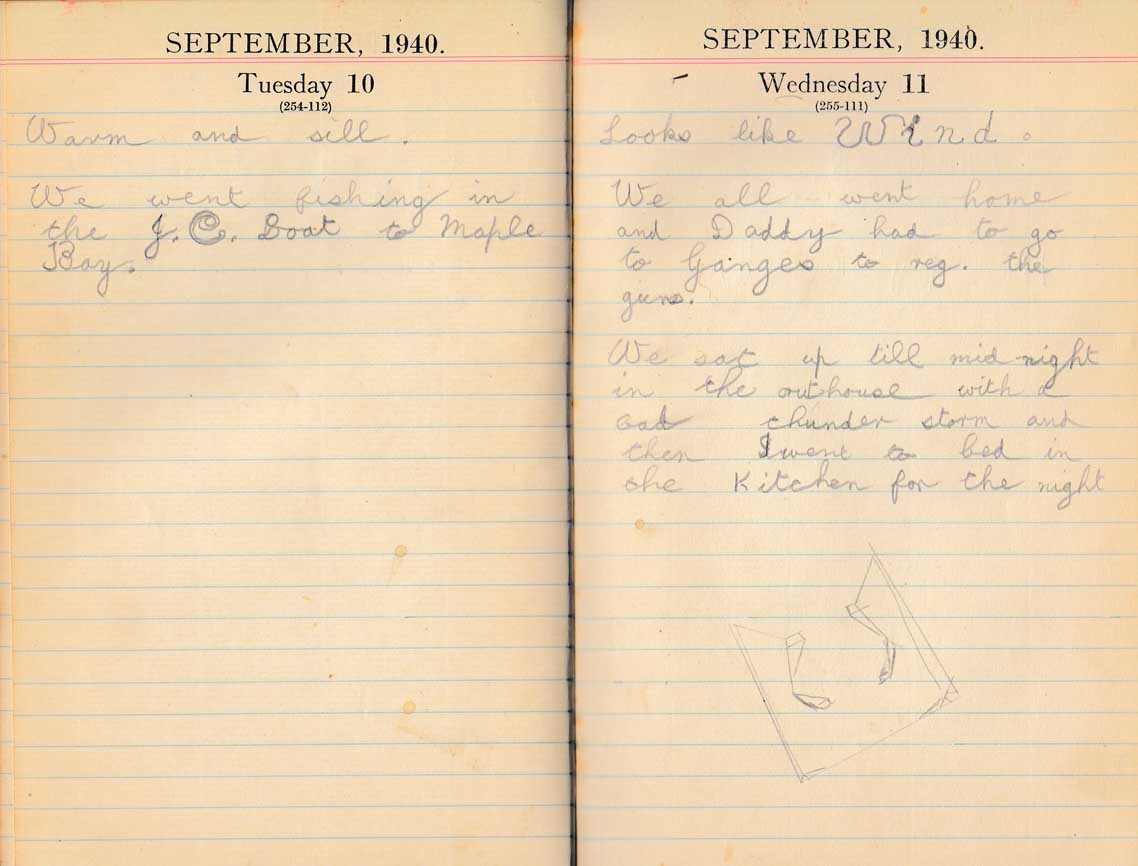 SEPTEMBER, 1940.
Tuesday 10
(254-112)
Warm and sill.
We went fishing in
the J.C. Boat to Maple
Bay.
SEPTEMBER, 1940.
Wednesday 11
(255-111)
Looks like Wind.
We all went home
and Daddy had to go
to Ganges to reg. the
guns.
We sat up till mid night
in the outhouse with a
bad thunder storm and
then I went to bed in
the Kitchen for the night